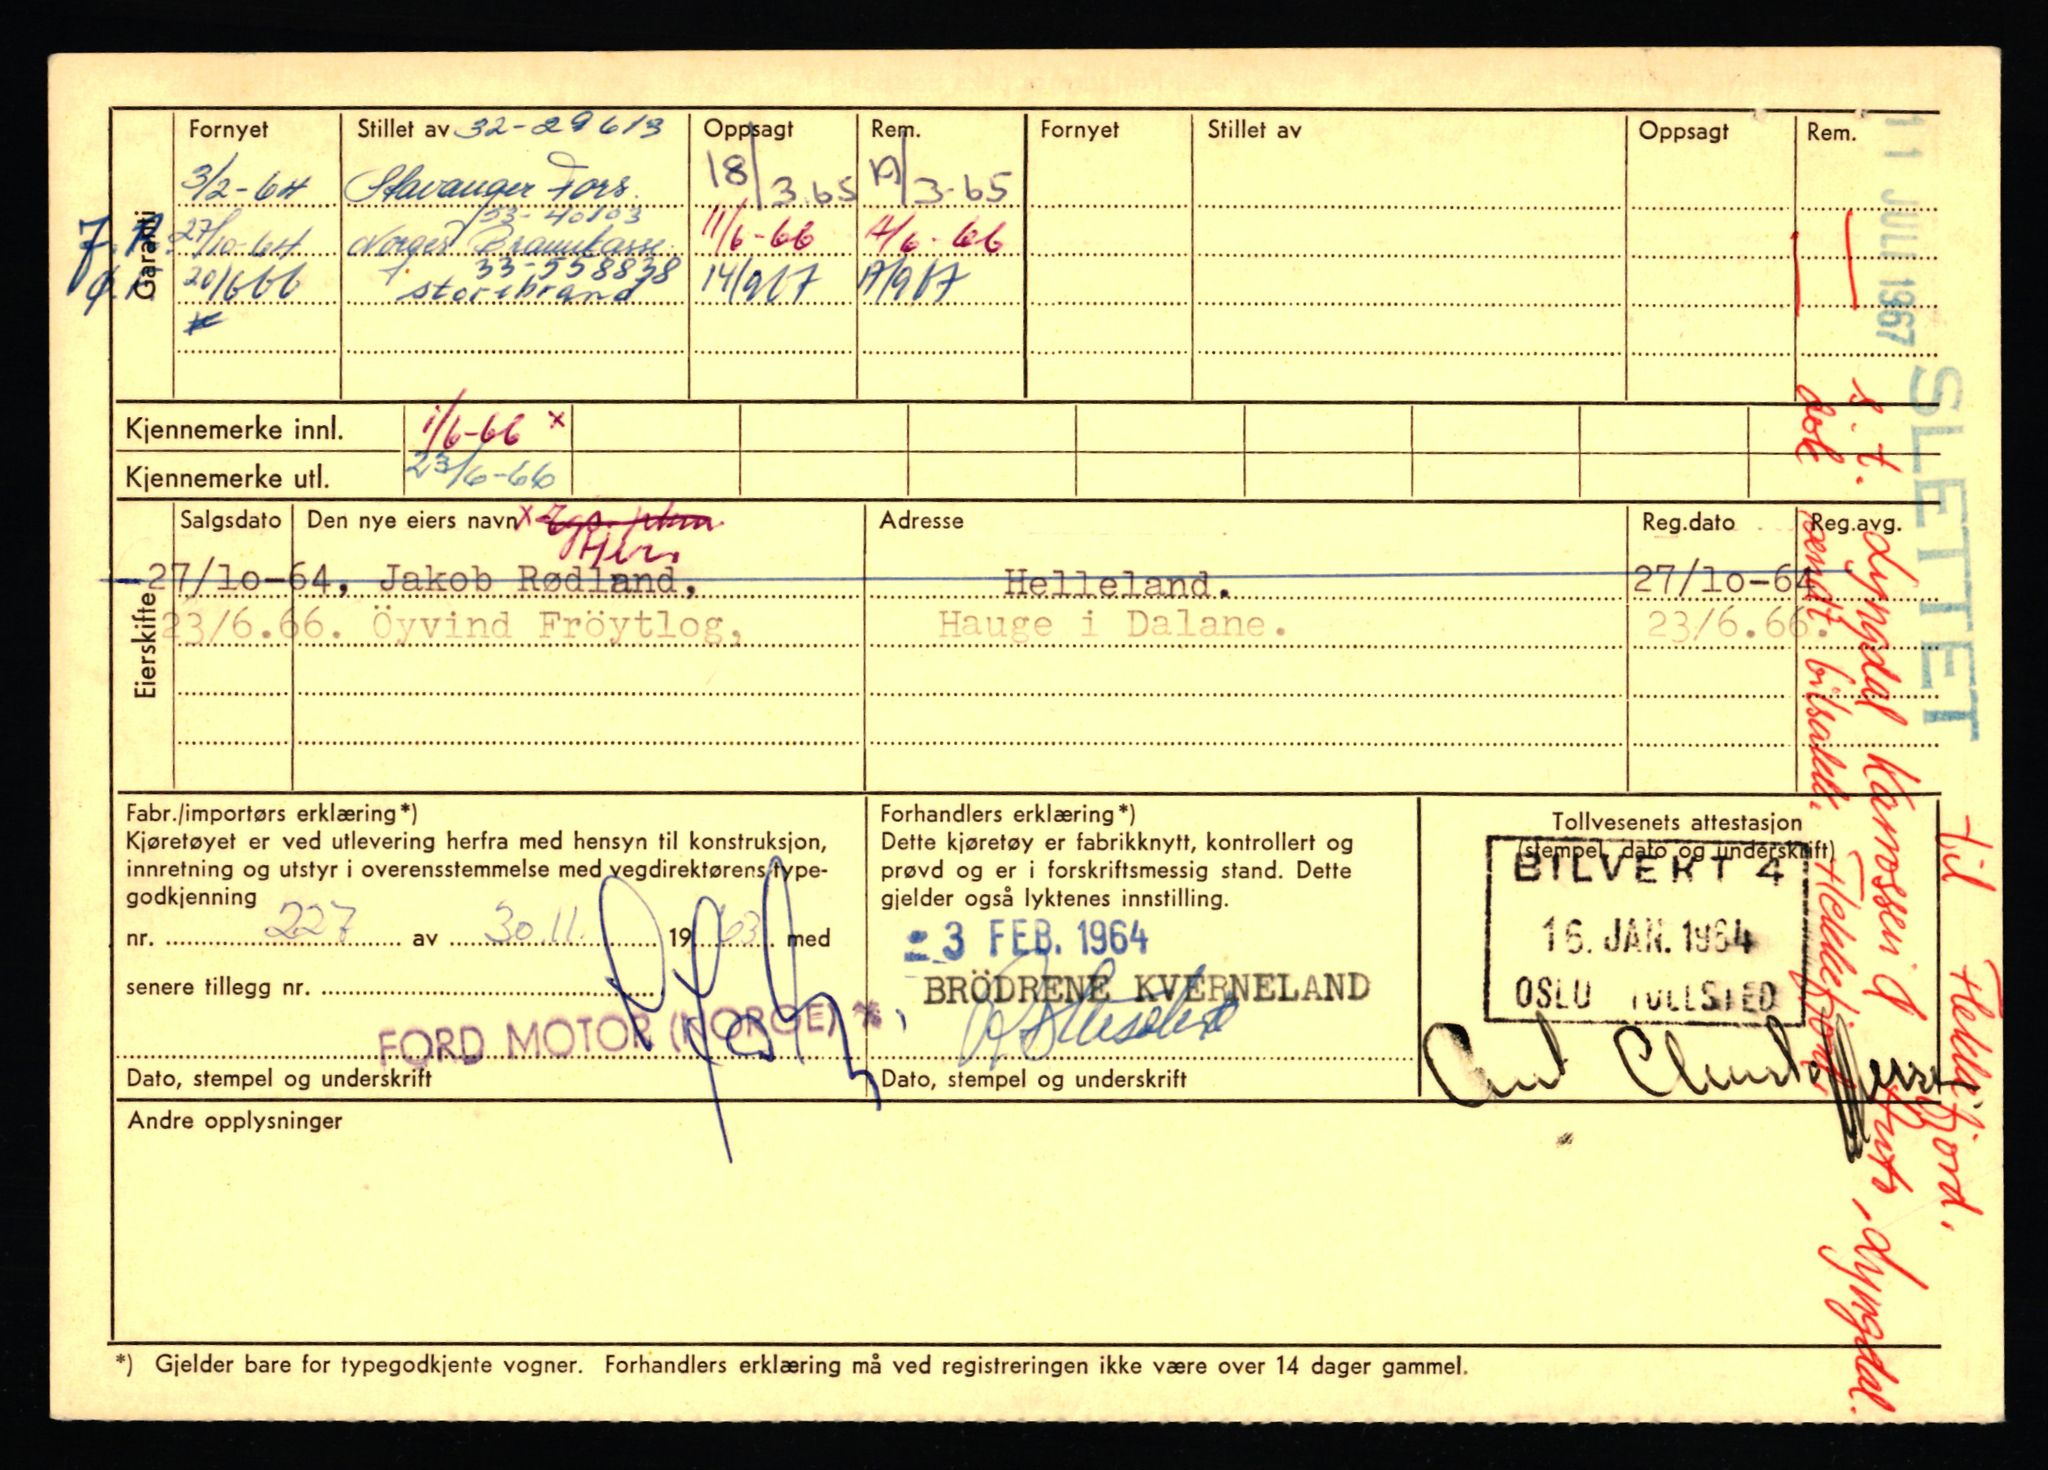 Garanti
Fornyet Stillet av 32-29613 Oppsagt Rem. Fornyet Stillet av Oppsagt Rem.
3/2-64 Stavanger Fors. 18/3.65 A/3-65
53-40103
27/10-64 Norges Brannkasse 11/6-66 A/6-66
33-558838
20/6 66 storebrand 14/9 67 A/9 67
Kjennemerke innl. 1/6-66 x
Kjennemerke utl. 23/6-66
Eierskifte
Salgsdato Den nye eiers navn x Adresse Reg.dato Reg.avg.
27/10-64, Jakob Rødland, Helleland. 27/10-64
23/6.66. Öyvind Fröytlog, Hauge i Dalane. 23/6.66.
11 JULI 1967
SLETTET
s.t. Lyngdal Karosseri & Auto, Lyngdal.
sendt bilsakk. Flekkefjord.
til Flekkefjord.
Fabr./importørs erklæring*)
Kjøretøyet er ved utlevering herfra med hensyn til konstruksjon,
innretning og utstyr i overensstemmelse med vegdirektørens type-
godkjenning
nr. 227 av 30.11. 1963 med
senere tillegg nr.
FORD MOTOR (NORGE)
Dato, stempel og underskrift
Forhandlers erklæring*)
Dette kjøretøy er fabrikknytt, kontrollert og
prøvd og er i forskriftsmessig stand. Dette
gjelder også lyktenes innstilling.
- 3 FEB. 1964
BRÖDRENE KVERNELAND
Dato, stempel og underskrift
Tollvesenets attestasjon
(stempel, dato og underskrift)
BILVEKT 4
16. JAN. 1964
OSLO TOLLSTED
Andre opplysninger
*) Gjelder bare for typegodkjente vogner. Forhandlers erklæring må ved registreringen ikke være over 14 dager gammel.